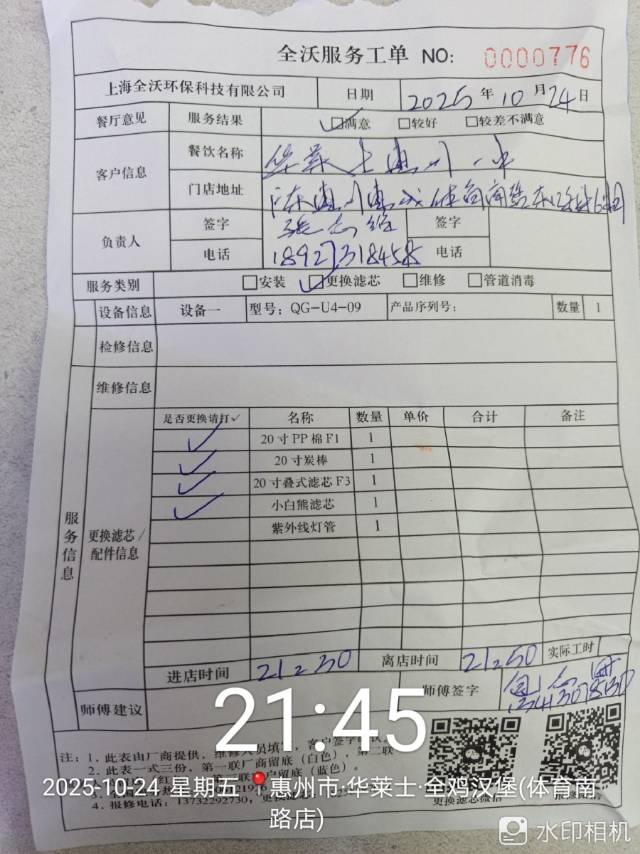 全沃服务工单 NO: 0000776
上海全沃环保科技有限公司 日期 2025年10月24日
餐厅意见 服务结果 ☑满意 □较好 □较差不满意
客户信息 餐饮名称 华莱士惠州一中
门店地址
负责人 签字 签字
电话 18927318458 电话
服务类别 □安装 ☑更换滤芯 □维修 □管道消毒
设备信息 设备一 型号: QG-U4-09 产品序列号: 数量 1
检修信息
维修信息
服务信息
更换滤芯/配件信息
是否更换请打✓ 名称 数量 单价 合计 备注
✓ 20寸PP棉F1 1
✓ 20寸炭棒 1
✓ 20寸叠式滤芯F3 1
✓ 小白熊滤芯 1
紫外线灯管 1
进店时间 21:30 离店时间 21:50 实际工时
师傅建议 师傅签字
21:45
注: 1. 此表由厂商提供, 维修人员填
2. 此表一式三份, 第一联厂商留底(白色)
户留底(蓝色)。
2025-10-24 星期五 惠州市·华莱士·全鸡汉堡(体育南路店)
4. 报修电话: 13732292730,
更换滤芯微信
水印相机